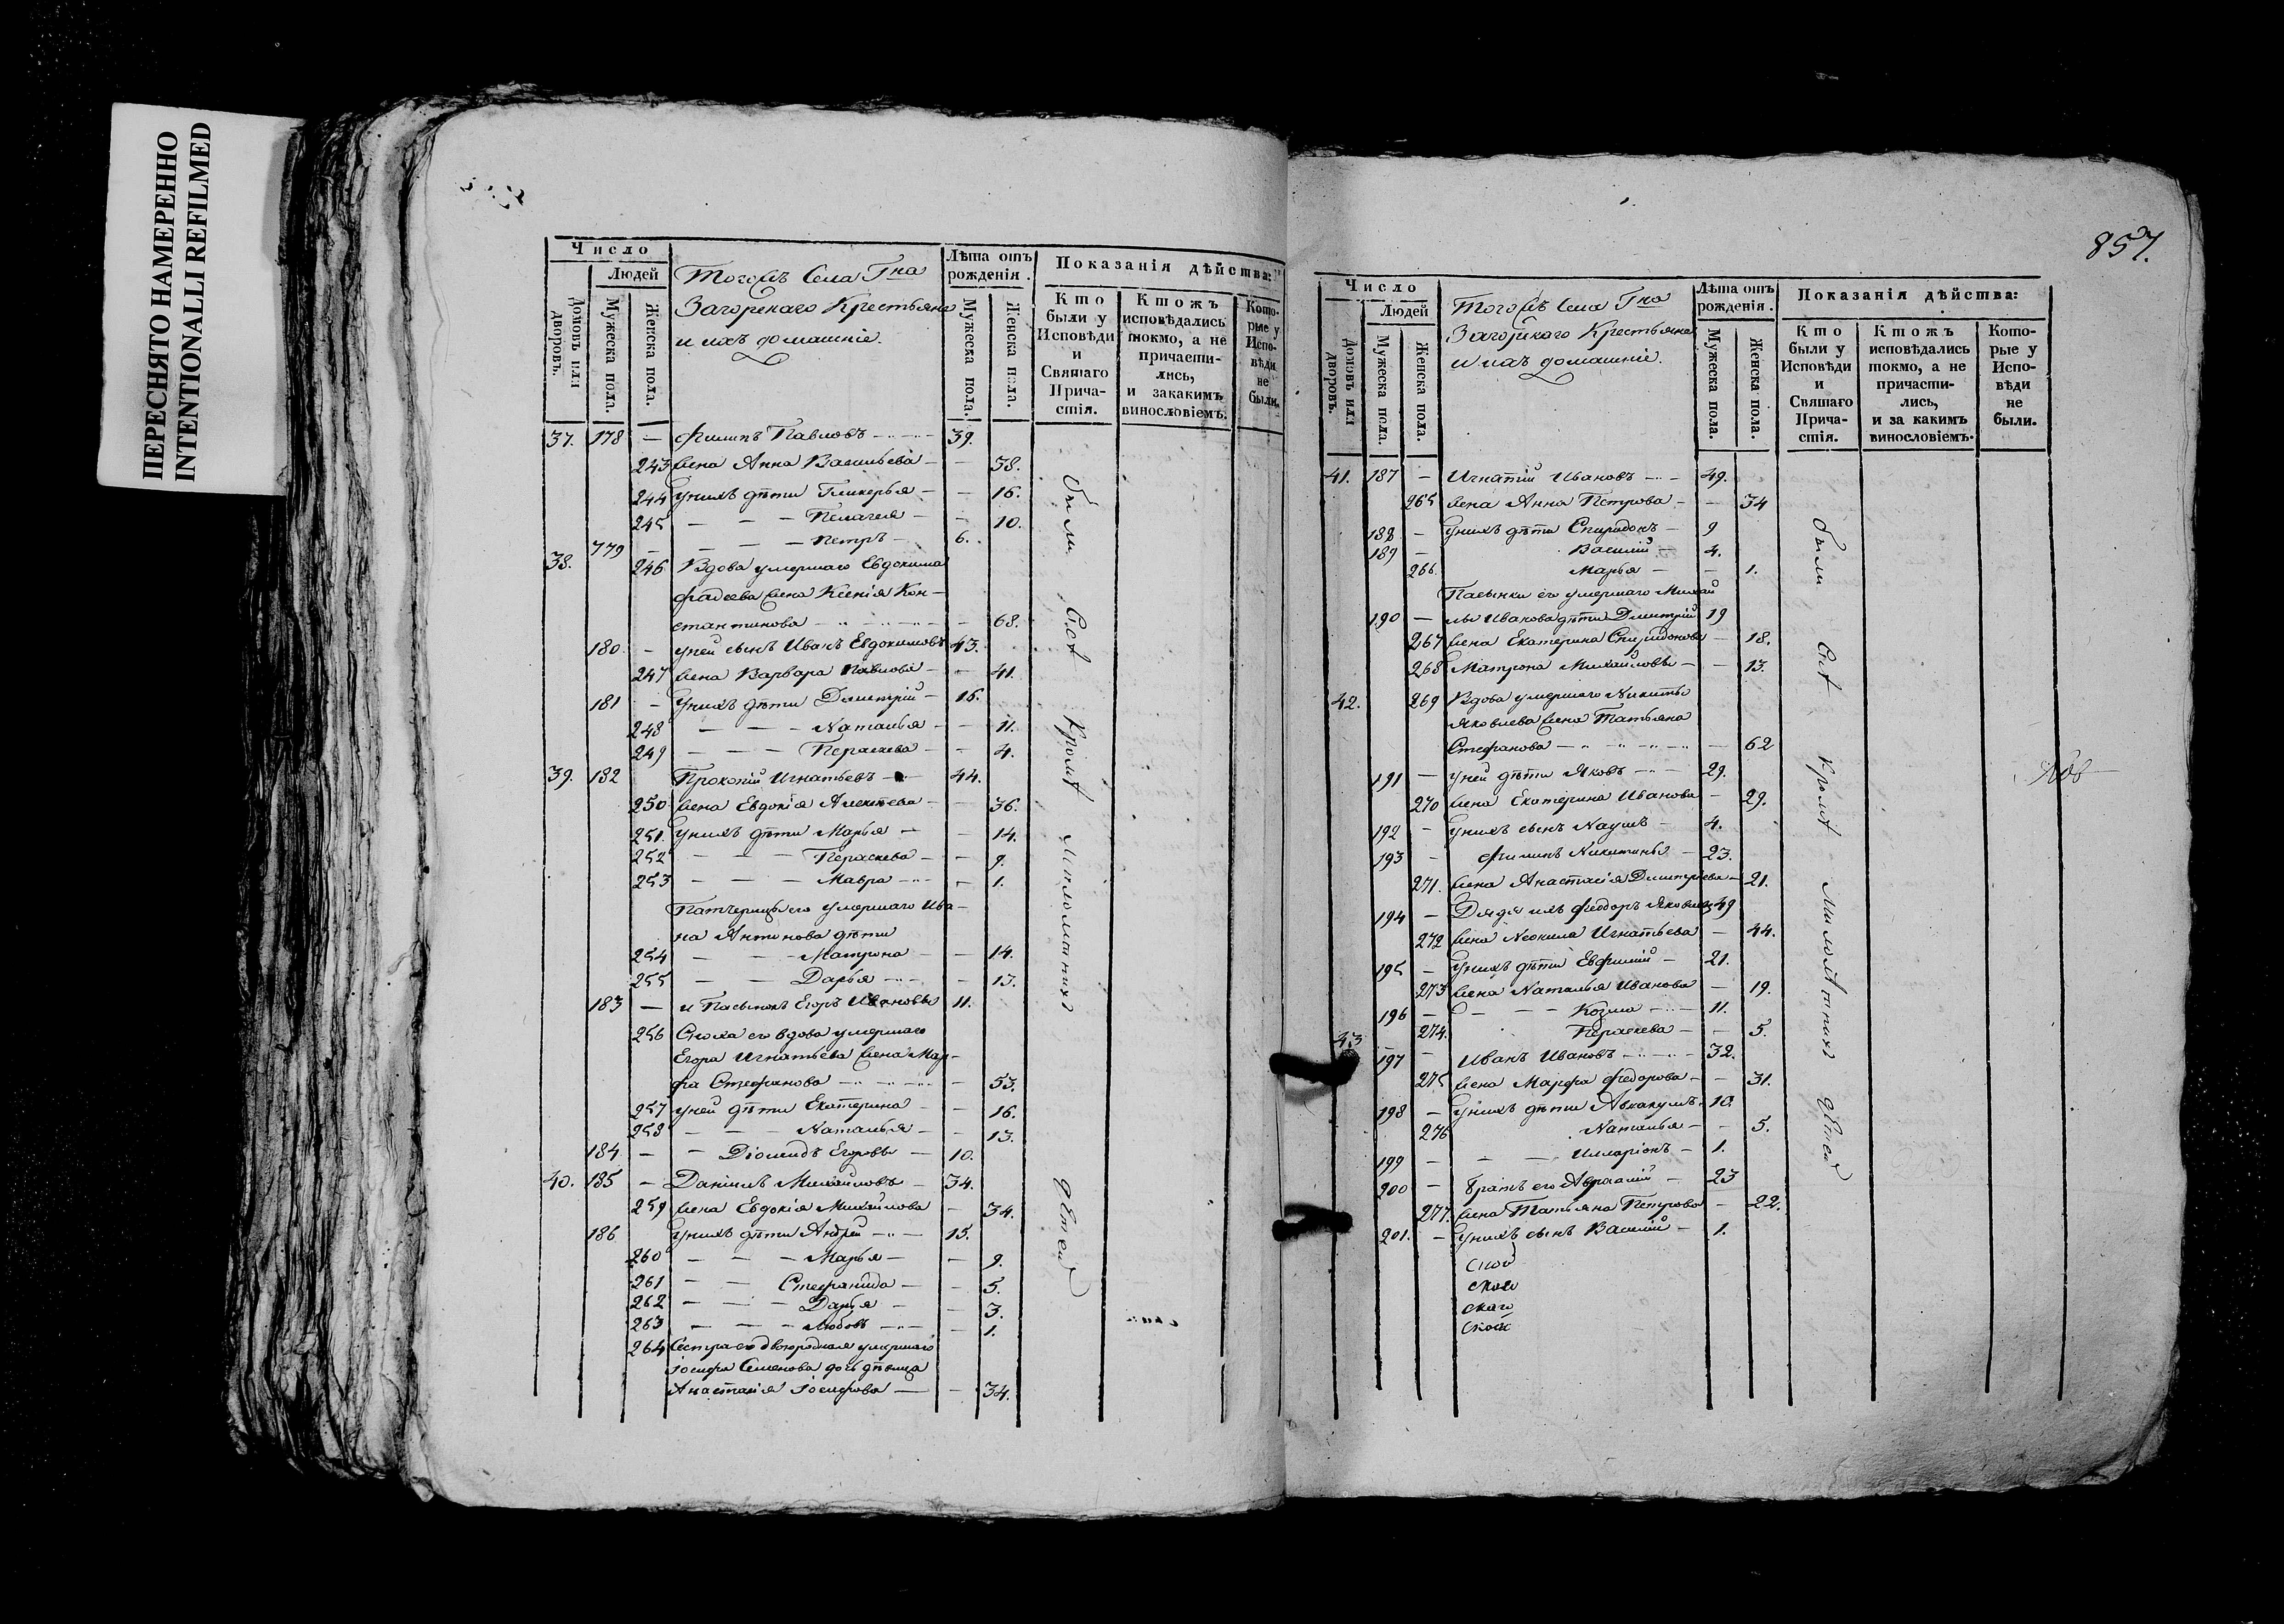 ПЕРЕСНЯТО НАМЕРЕННО
INTENTIONALLI REFILMED
Число
Людей
Домовъ или дворовъ.
Мужеска пола.
Женска пола.
Тогожъ Села Гна
Загорскаго Крестьяне
и ихъ домашніе.
Лѣта отъ рожденія.
Мужеска пола.
Женска пола.
Показанія дѣйства:
Кто были у Исповѣди и Святаго Причастія.
Ктожъ исповѣдались токмо, а не причастились, и закакимъ винословіемъ.
Которые у Исповѣди не были.
37. 178 — Филипъ Павловъ — 39.
243 жена Анна Васильева — — 38.
244 у нихъ дѣти Гликерья — — 16.
245 — — — Пелагея — — 10.
779 — — — — Петръ — 6.
38. 246 Вдова умершаго Евдокима
Фадеева жена Ксенія Кон-
стантинова — — 68.
180 — у ней сынъ Иванъ Евдокимовъ 43.
247 жена Варвара Павлова — — 41.
181 — у нихъ дѣти Димитрій — 16.
248 — — — Наталья — — 11.
249 — — — Параскева — — 4.
39. 182 Прокопій Игнатьевъ — 44.
250 жена Евдокія Алексѣева — — 36.
251. у нихъ дѣти Марья — — 14.
252 — — — Параскева — — 9.
253 — — — Мавра — — 1.
Патчерицы его умершаго Ива-
на Антонова дѣти
254 — — — Матрона — — 14.
255 — — — Дарья — — 13.
183 — и Пасынокъ Егоръ Ивановъ 11.
256 Сноха его вдова умершаго
Егора Игнатьева жена Мар-
фа Стефанова — — 53.
257 у ней дѣти Екатерина — — 16.
258 — — — Наталья — — 13.
184 — — Діомидъ Егоровъ — 10.
40. 185 — Даніилъ Михайловъ — 34.
259 жена Евдокія Михайлова — 34.
186 у нихъ дѣти Андрей — 15.
260 — — — Марья — — 9.
261 — — Стефанида — — 5.
262 — — — Дарья — — 3.
263 — — — Любовь — — 1.
264 Сестра его двоюродная умершаго
Іосифа Семенова дочь дѣвица
Анастасія Іосифова — — 34.
были всѣ кромѣ малолѣтнихъ дѣтей
857.
Число
Людей
Домовъ или дворовъ.
Мужеска пола.
Женска пола.
Тогожъ Села Гна
Загорскаго Крестьяне
и ихъ домашніе.
Лѣта отъ рожденія.
Мужеска пола.
Женска пола.
Показанія дѣйства:
Кто были у Исповѣди и Святаго Причастія.
Ктожъ исповѣдались токмо, а не причастились, и за какимъ винословіемъ.
Которые у Исповѣди не были.
41. 187 — Игнатій Ивановъ — 49.
265 жена Анна Петрова — — 34
188 — у нихъ дѣти Спиридонъ — 9
189 — Василій — 4.
266. Марья — — 1.
Пасынки его умершаго Михай
190 — лы Иванова дѣти Димитрій 19
267 жена Екатерина Спиридонова — 18.
268 Матрона Михайловы — — 13.
42. 269 Вдова умершаго Никиты
Яковлева жена Татьяна
Стефанова — — 62
191 — у ней дѣти Яковъ — 29.
270 жена Екатерина Иванова — 29.
192 — у нихъ сынъ Наумъ — 4.
193 — Филипъ Никитины — 23.
271. жена Анастасія Димитріева — 21.
194 — Дядя ихъ Феодоръ Яковлевъ 49
272 жена Неонила Игнатьева — 44.
195 — у нихъ дѣти Евфимій — 21.
273 жена Наталья Иванова — 19.
196 — — — — Козма — 11.
274. Параскева — — 5.
43 197 — Иванъ Ивановъ — 32.
275 жена Марфа Федорова — — 31.
198 — у нихъ дѣти Аввакумъ 10.
276 Наталья — — 5.
199 — — — Иларіонъ — 1.
200 — братъ его Авраамій — 23
277. жена Татьяна Петрова — 22.
201. — у нихъ сынъ Василій — 1.
были всѣ кромѣ малолѣтнихъ дѣтей